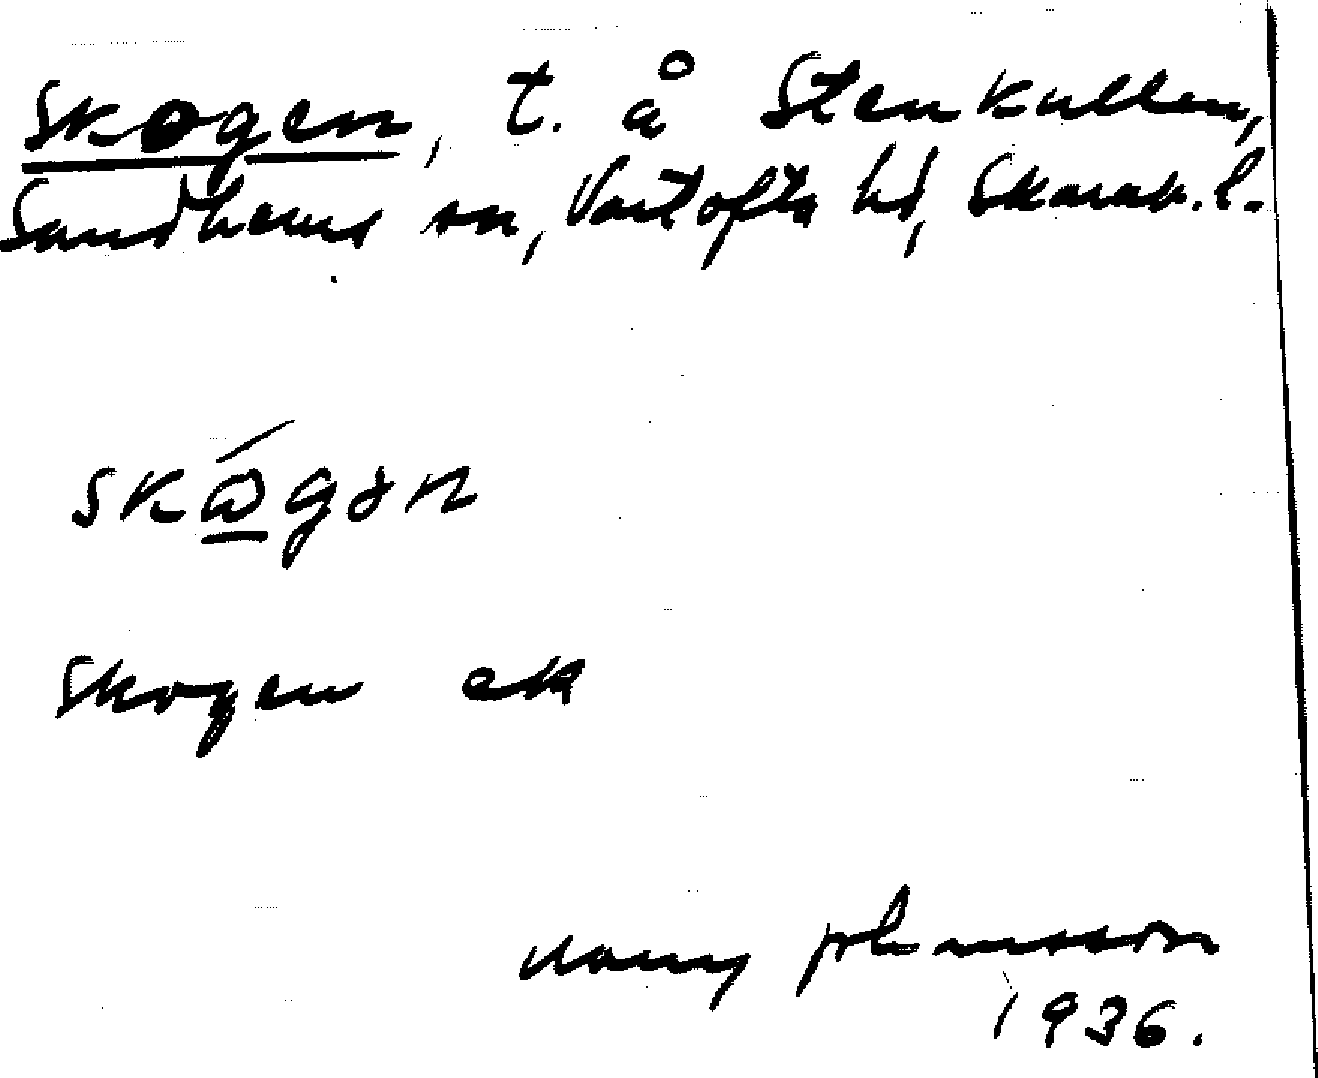 Skogen, t. å Stenkullen,
Sandhems sn, Vartofta hd, Skarab. l.
skógən
Skogen ek
Johansson
1936.